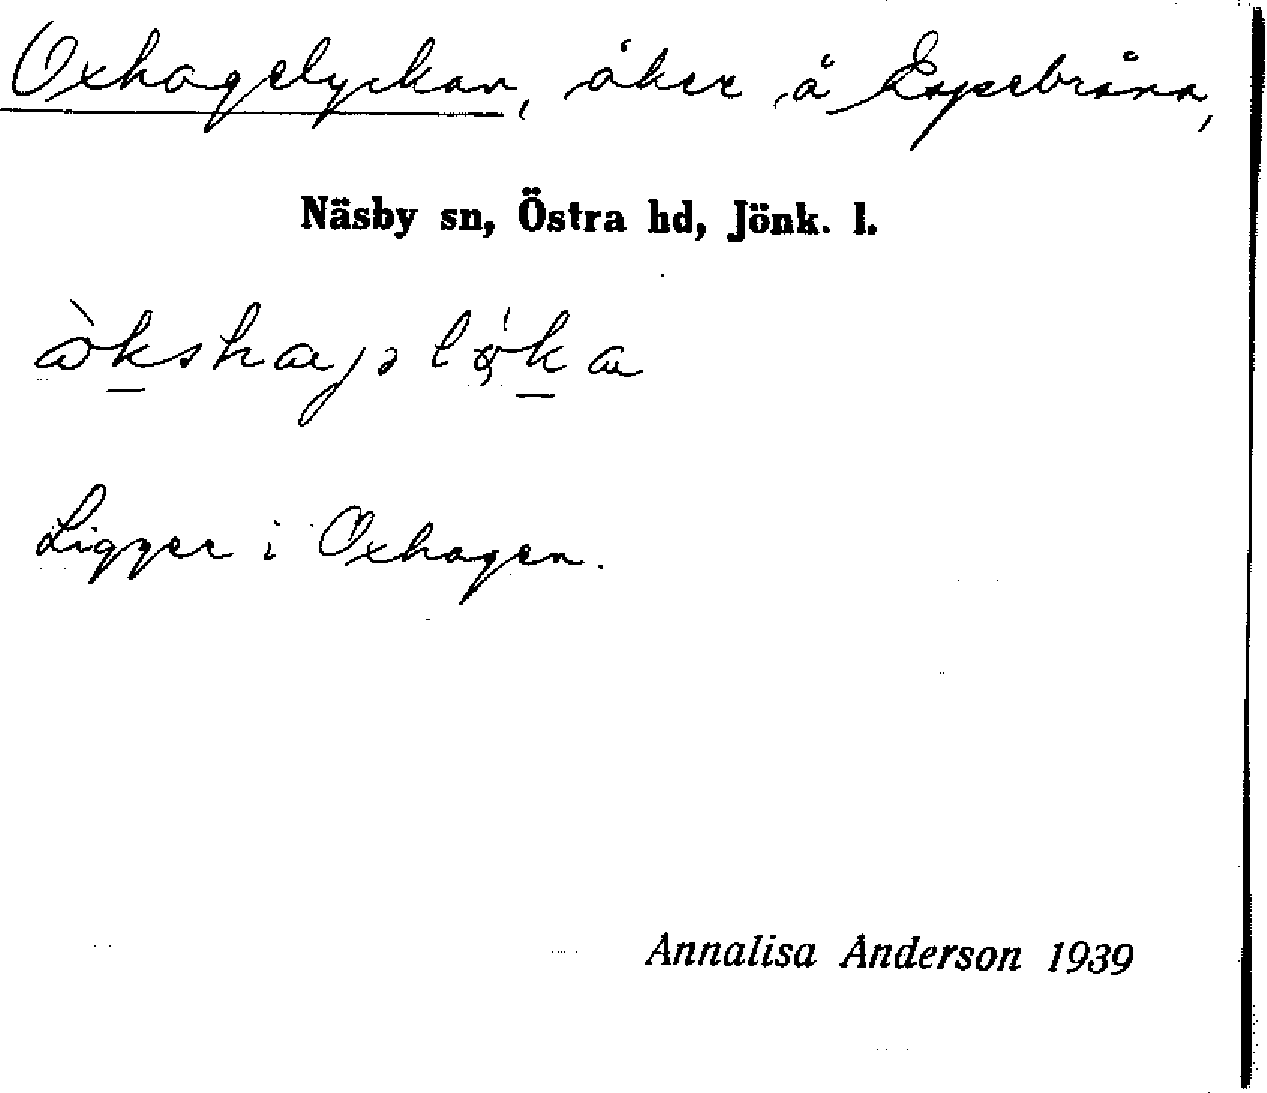 Oxhagelyckan, åker å Espebråna,
Näsby sn, Östra hd, Jönk. l.
Ligger i Oxhagen.
Annalisa Anderson 1939